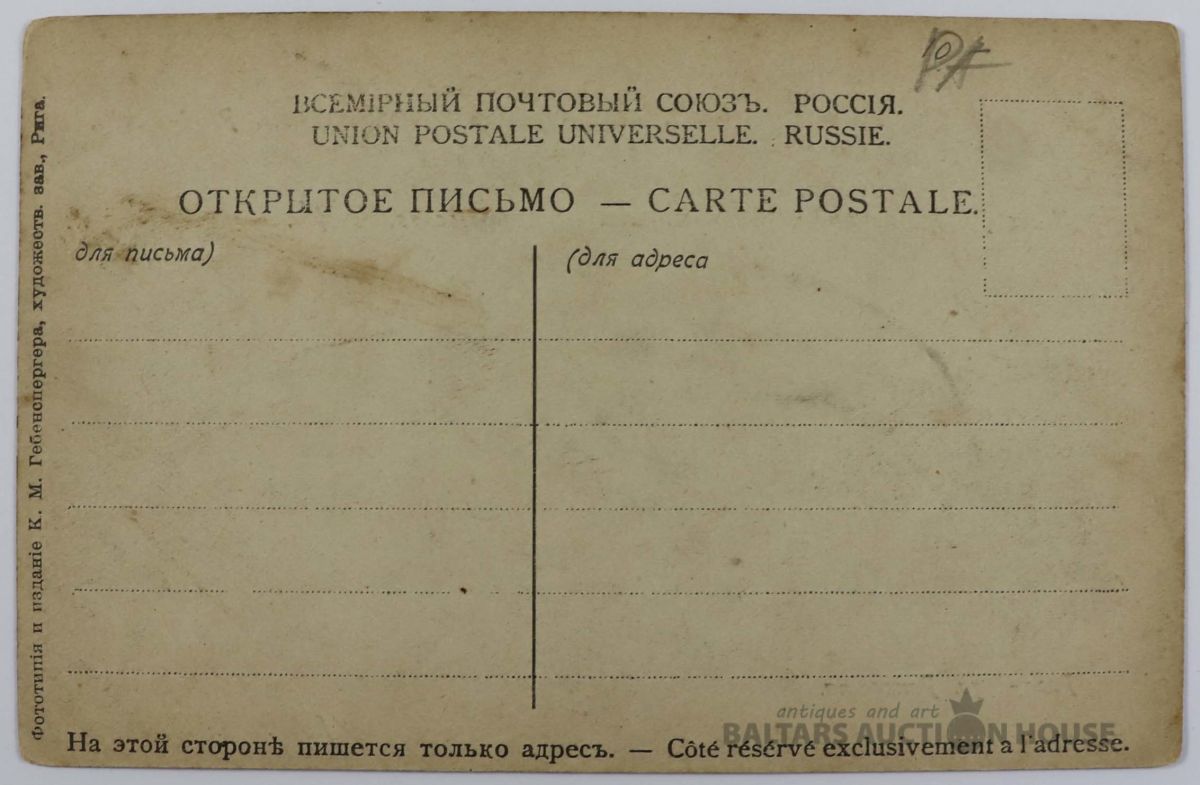 ВСЕМІРНЫЙ ПОЧТОВЫЙ СОЮЗЪ. РОССІЯ.
UNION POSTALE UNIVERSELLE. RUSSIE.
ОТКРЫТОЕ ПИСЬМО — CARTE POSTALE.
для письма)
(для адреса
Фототипія и изданіе К. М. Гебенспергера, художеств. зав., Рига.
antiques and art
BALTARS AUCTION HOUSE
На этой сторонѣ пишется только адресъ. — Côté résérvé exclusivement a l'adresse.